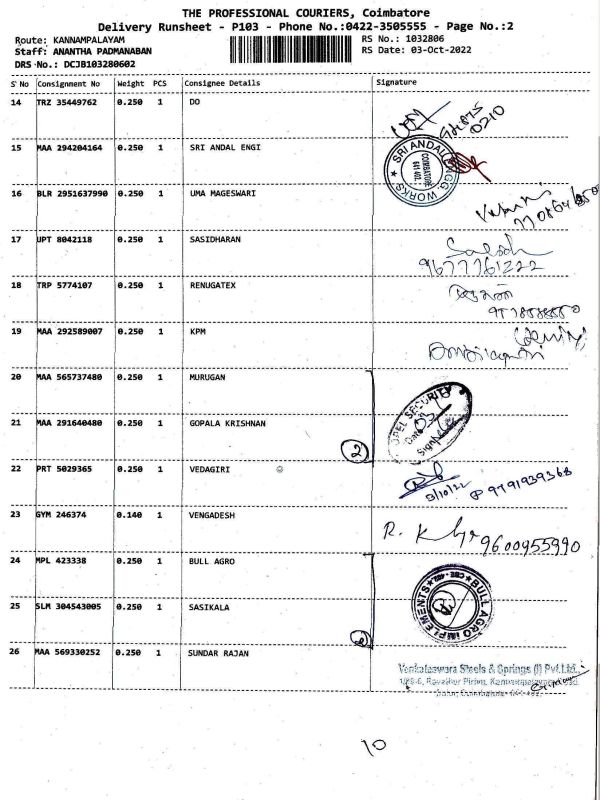 THE PROFESSIONAL COURIERS, Coimbatore
Delivery Runsheet - P103 - Phone No.:0422-3505555 - Page No.:2
Route: KANNAMPALAYAM RS No.: 1032806
Staff: ANANTHA PADMANABAN RS Date: 03-Oct-2022
DRS No.: DCJB103280602
S'No Consignment No Weight PCS Consignee Details Signature
14 TRZ 35449762 0.250 1 DO
15 MAA 294204164 0.250 1 SRI ANDAL ENGI
SRI ANDAL ENGG. WORKS
COIMBATORE
641 402.
16 BLR 2951637990 0.250 1 UMA MAGESWARI
17 UPT 8042118 0.250 1 SASIDHARAN
9677761222
18 TRP 5774107 0.250 1 RENUGATEX
19 MAA 292589007 0.250 1 KPM
20 MAA 565737480 0.250 1 MURUGAN
21 MAA 291640480 0.250 1 GOPALA KRISHNAN
2
SECURITY
Date
22 PRT 5029365 0.250 1 VEDAGIRI
3/10/22 9791939368
23 GYM 246374 0.140 1 VENGADESH
R. 9600955990
24 MPL 423338 0.250 1 BULL AGRO
BULL AGRO IMPLEMENTS
CBE-402
25 SLM 304543005 0.250 1 SASIKALA
26 MAA 569330252 0.250 1 SUNDAR RAJAN
Venkateswara Steels & Springs (I) Pvt.Ltd.,
10